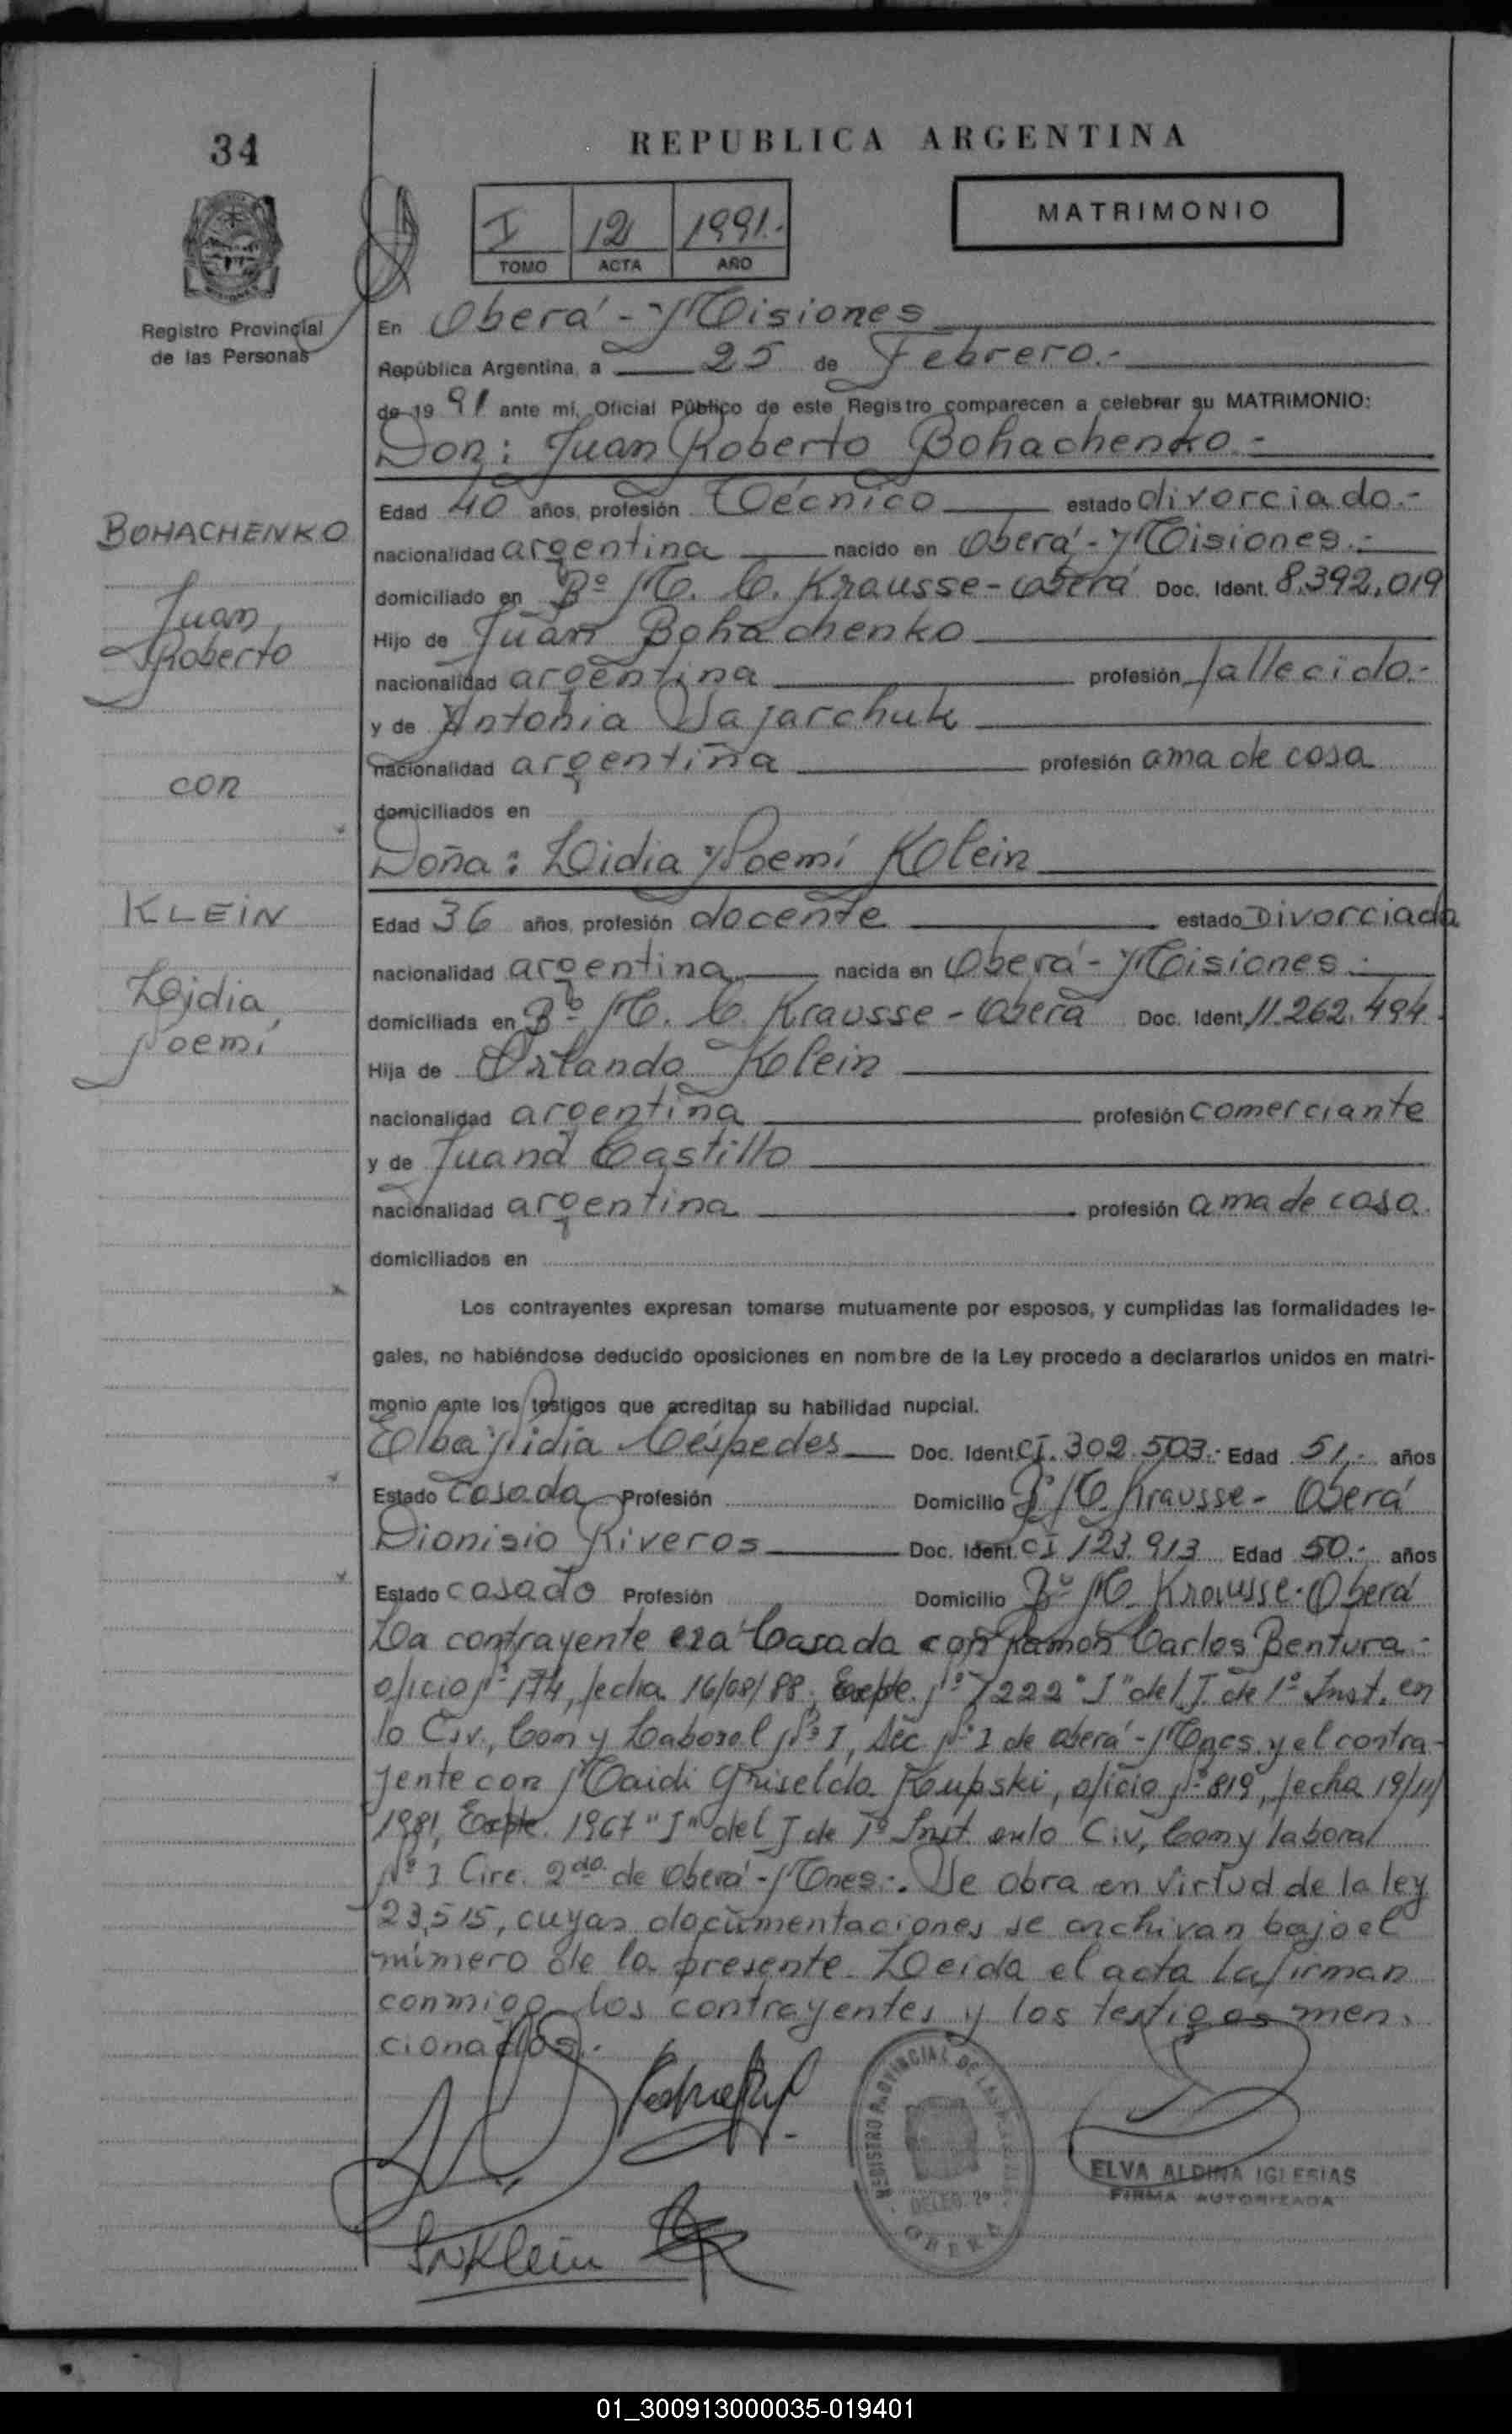 34
REPUBLICA ARGENTINA
MATRIMONIO
I 12 1991.-
TOMO ACTA AÑO
Registro Provincial
de las Personas
En Oberá - Misiones
República Argentina, a 25 de Febrero.-
de 19 91 ante mí, Oficial Público de este Registro comparecen a celebrar su MATRIMONIO:
Don: Juan Roberto Bohachenko.-
Edad 40 años, profesión Técnico estado divorciado.-
BOHACHENKO
Juan
Roberto
con
KLEIN
Lidia
Noemí
nacionalidad argentina nacido en Oberá - Misiones.-
domiciliado en Bº M. C. Krausse - Oberá Doc. Ident. 8.392.019
Hijo de Juan Bohachenko
nacionalidad argentina profesión fallecido.-
y de Antonia Sajarchuk
nacionalidad argentina profesión ama de casa
domiciliados en
Doña: Lidia Noemí Klein
Edad 36 años, profesión docente estado Divorciada
nacionalidad argentina nacida en Oberá - Misiones.-
domiciliada en Bº M. C. Krausse - Oberá Doc. Ident. 11.262.494.
Hija de Orlando Klein
nacionalidad argentina profesión comerciante
y de Juana Castillo
nacionalidad argentina profesión ama de casa.
domiciliados en
Los contrayentes expresan tomarse mutuamente por esposos, y cumplidas las formalidades le-
gales, no habiéndose deducido oposiciones en nombre de la Ley procedo a declararlos unidos en matri-
monio ante los testigos que acreditan su habilidad nupcial.
Elba Nidia Céspedes Doc. Ident. CI. 302.503.- Edad 51.- años
Estado Casada Profesión Domicilio Bº M. Krausse - Oberá
Dionisio Riveros Doc. Ident. CI 123.913 Edad 50.- años
Estado casado Profesión Domicilio Bº M. Krausse - Oberá
La contrayente era Casada con Ramon Carlos Bentura -
oficio Nº 174, fecha 16/08/88, Expte. Nº 7222 "J" del J. de 1º Inst. en
lo Civ., Com y Laboral Nº 1, Sec Nº 1 de Oberá - Mnes. y el contra-
yente con Maidi Griselda Kupski, oficio Nº 819, fecha 19/11/
1981, Expte. 1967 "J" del J de 1º Inst en lo Civ, Com y laboral
Nº 1 Circ. 2da. de Oberá - Mnes.-. Se obra en virtud de la ley
23.515, cuyas documentaciones se archivan bajo el
número de la presente. Leida el acta la firman
conmigo los contrayentes y los testigos men.
cionados.-
LNKlein
REGISTRO PROVINCIAL DE LAS PERSONAS
DELEG. 2ª
OBERA
ELVA ALDINA IGLESIAS
FIRMA AUTORIZADA
01_300913000035-019401